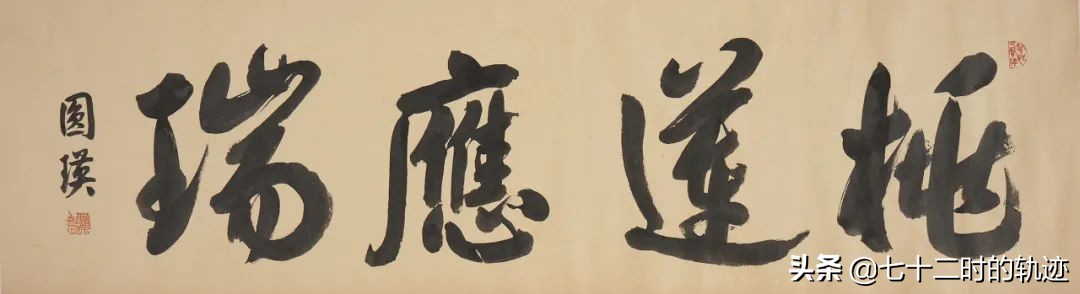 桃蓮應瑞
圓瑛
头条 @七十二时的轨迹